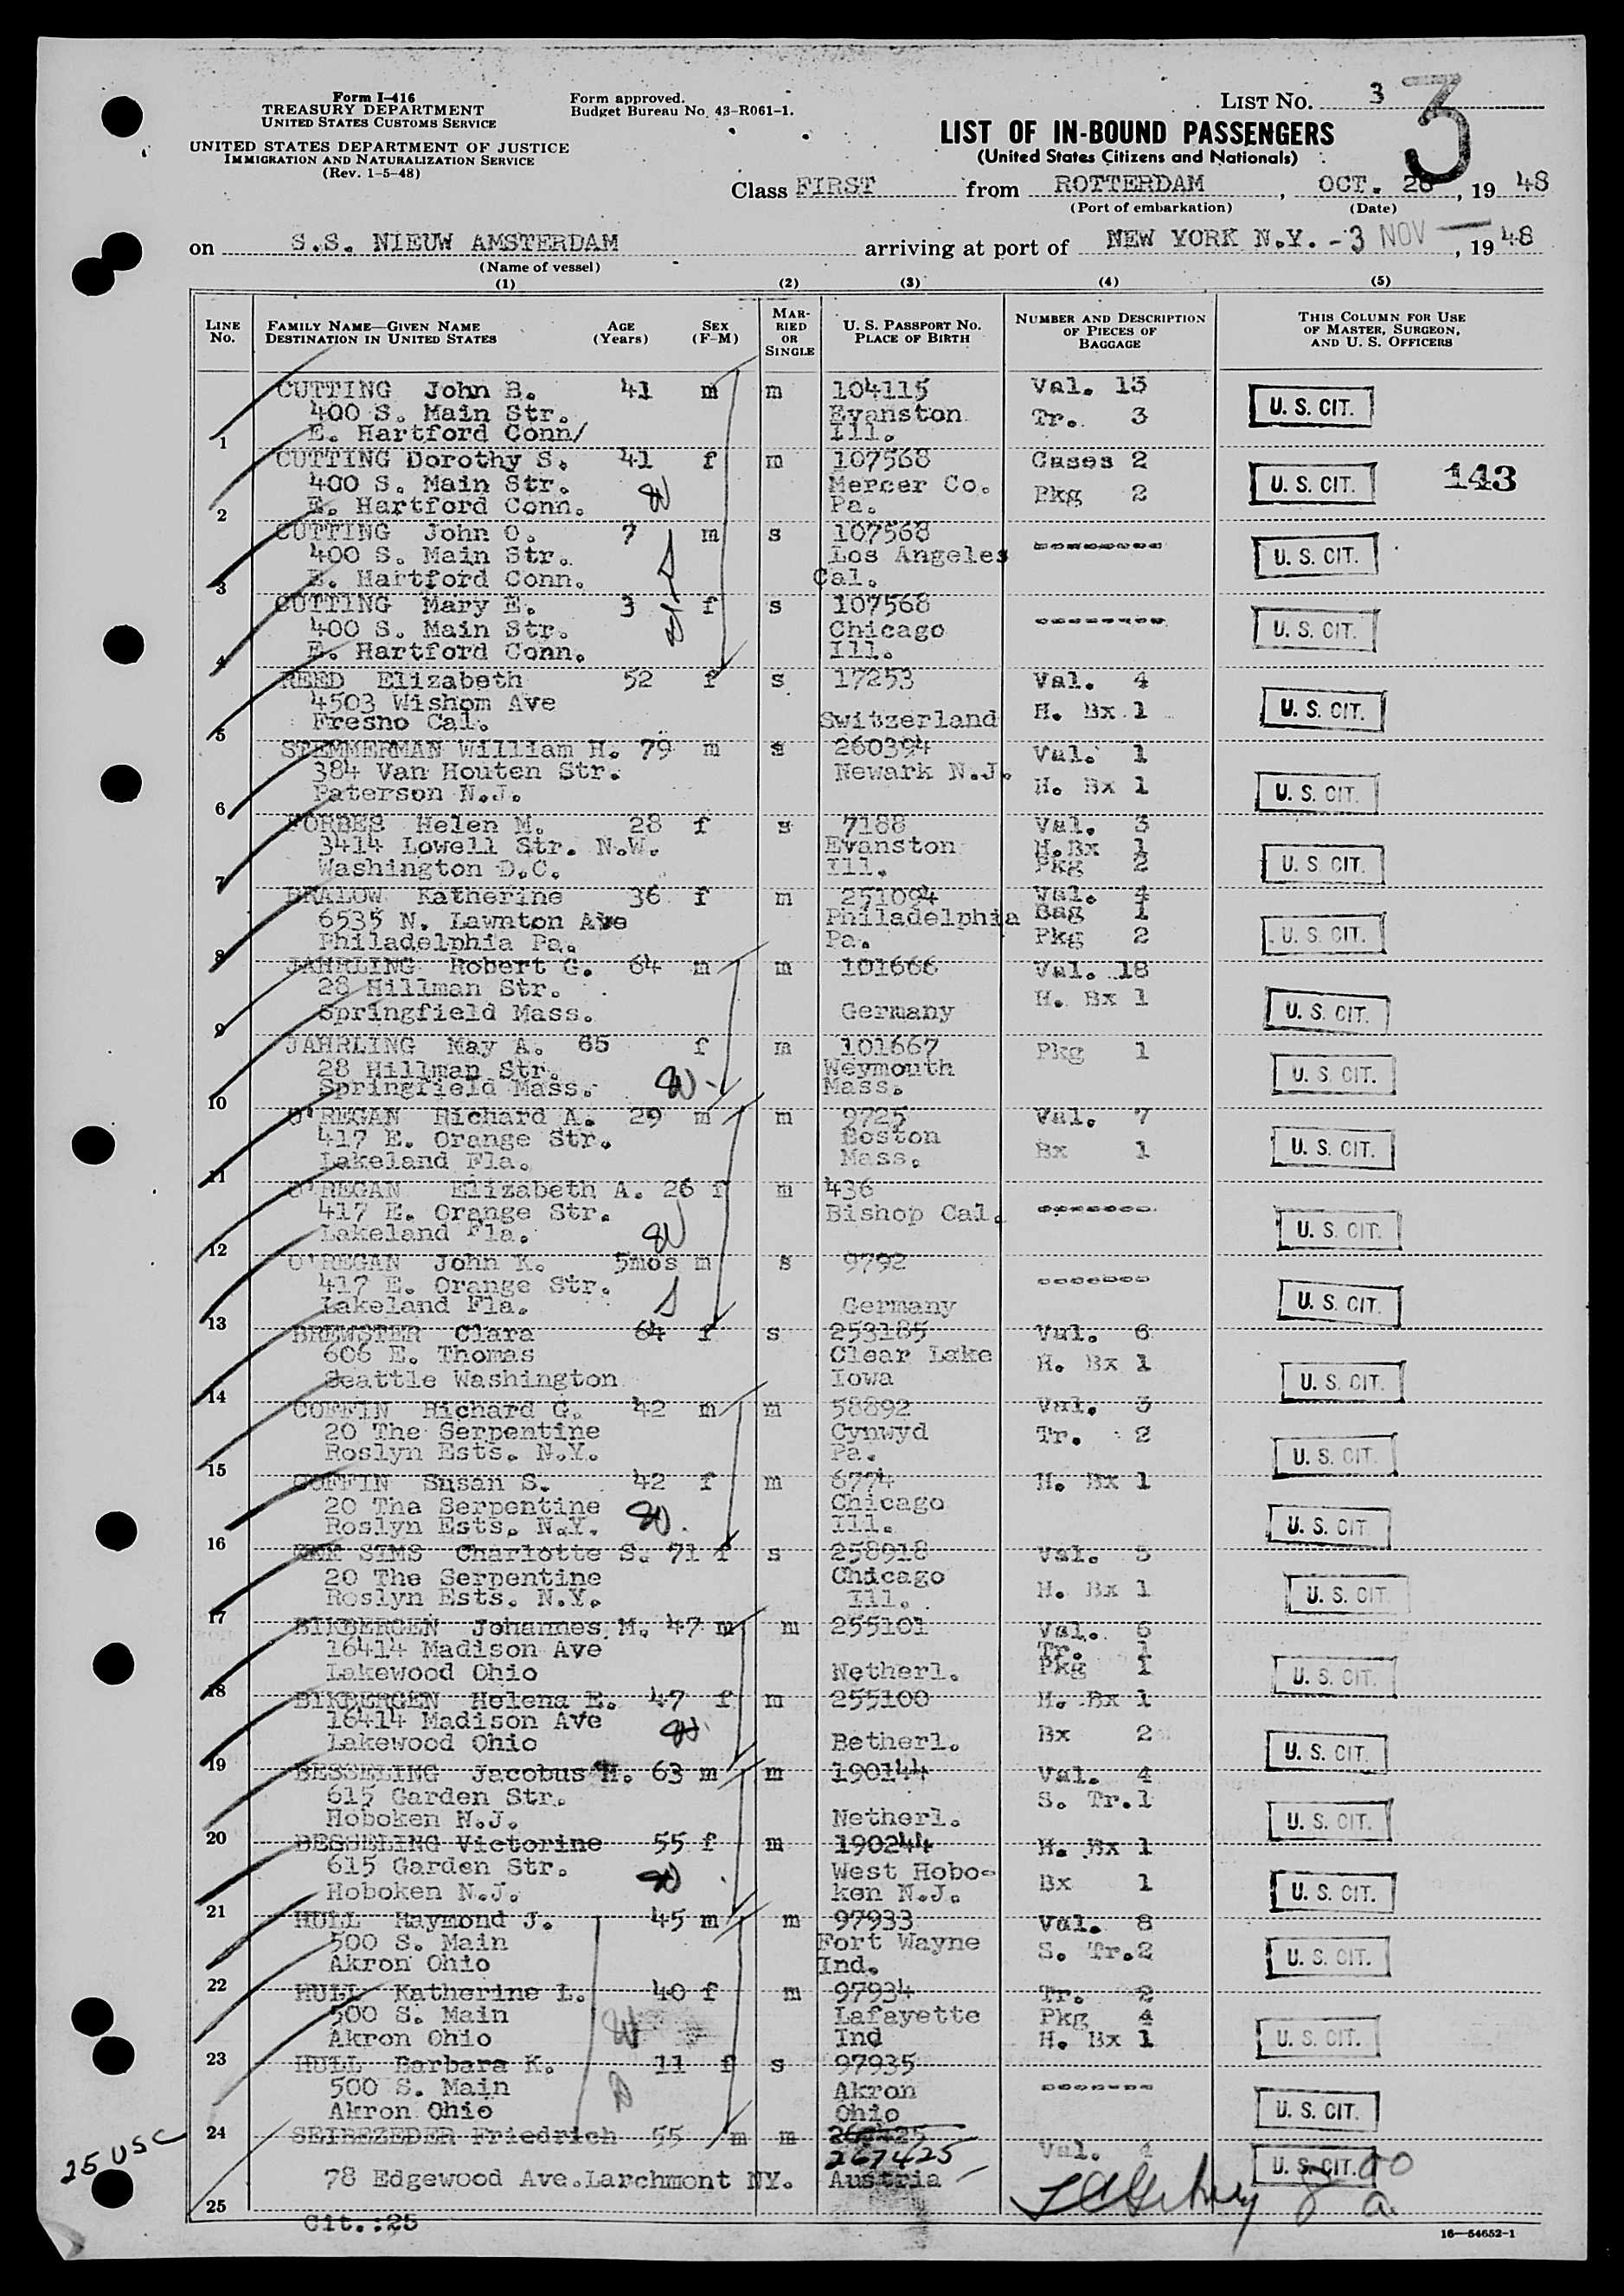 Form I-416
TREASURY DEPARTMENT
UNITED STATES CUSTOMS SERVICE
UNITED STATES DEPARTMENT OF JUSTICE
IMMIGRATION AND NATURALIZATION SERVICE
(Rev. 1-5-48)
Form approved.
Budget Bureau No. 43-R061-1.
LIST NO. 3
3
LIST OF IN-BOUND PASSENGERS
(United States Citizens and Nationals)
Class FIRST from ROTTERDAM, OCT. 26, 19 48
(Port of embarkation) (Date)
on S.S. NIEUW AMSTERDAM arriving at port of NEW YORK N.Y. -3 NOV, 19 48
(Name of vessel)
(1) (2) (3) (4) (5)
LINE NO. FAMILY NAME—GIVEN NAME DESTINATION IN UNITED STATES AGE (Years) SEX (F-M) MARRIED OR SINGLE U. S. PASSPORT NO. PLACE OF BIRTH NUMBER AND DESCRIPTION OF PIECES OF BAGGAGE THIS COLUMN FOR USE OF MASTER, SURGEON, AND U. S. OFFICERS
CUTTING John B. 41 m m 104115 Val. 13
400 S. Main Str. Evanston Tr. 3 U. S. CIT.
1 E. Hartford Conn/ Ill.
CUTTING Dorothy S. 41 f m 107568 Cases 2
400 S. Main Str. Mercer Co. Pkg 2 U. S. CIT. 143
2 E. Hartford Conn. Pa.
CUTTING John O. 7 m s 107568
400 S. Main Str. Los Angeles -------- U. S. CIT.
3 E. Hartford Conn. Cal.
CUTTING Mary E. 3 f s 107568
400 S. Main Str. Chicago -------- U. S. CIT.
4 E. Hartford Conn. Ill.
REED Elizabeth 52 f s 17253 Val. 4
4503 Wishom Ave Switzerland H. Bx 1 U. S. CIT.
5 Fresno Cal.
STEMMERMAN William H. 79 m s 260394 Val. 1
384 Van Houten Str. Newark N.J. H. Bx 1 U. S. CIT.
6 Paterson N.J.
FORBES Helen M. 28 f s 7188 Val. 3
3414 Lowell Str. N.W. Evanston H.Bx 1
7 Washington D.C. Ill. Pkg 2 U. S. CIT.
BRALOW Katherine 36 f m 251094 Val. 4
6535 N. Lawnton Ave Philadelphia Bag 1
8 Philadelphia Pa. Pa. Pkg 2 U. S. CIT.
JAHRLING Robert G. 64 m m 101666 Val. 18
28 Hillman Str. H. Bx 1
9 Springfield Mass. Germany U. S. CIT.
JAHRLING May A. 65 f m 101667 Pkg 1
28 Hillman Str. Weymouth U. S. CIT.
10 Springfield Mass. Mass.
O'REGAN Richard A. 29 m m 9725 Val. 7
417 E. Orange Str. Boston Bx 1 U. S. CIT.
11 Lakeland Fla. Mass.
O'REGAN Elizabeth A. 26 f m 436
417 E. Orange Str. Bishop Cal. --------
12 Lakeland Fla. U. S. CIT.
O'REGAN John K. 5mos m s 9792
417 E. Orange Str. --------
13 Lakeland Fla. Germany U. S. CIT.
BREWSTER Clara 64 f s 253185 Val. 6
606 E. Thomas Clear Lake H. Bx 1
14 Seattle Washington Iowa U. S. CIT.
COFFIN Richard G. 42 m m 58892 Val. 3
20 The Serpentine Cynwyd Tr. 2
15 Roslyn Ests. N.Y. Pa. U. S. CIT.
COFFIN Susan S. 42 f m 6774 H. Bx 1
20 The Serpentine Chicago
16 Roslyn Ests. N.Y. Ill. U. S. CIT.
SIMS Charlotte S. 71 f s 258918 Val. 5
20 The Serpentine Chicago H. Bx 1
17 Roslyn Ests. N.Y. Ill. U. S. CIT.
BIKBERGEN Johannes M. 47 m m 255101 Val. 6
16414 Madison Ave Tr. 1
18 Lakewood Ohio Netherl. Pkg 1 U. S. CIT.
BIKBERGEN Helena E. 47 f m 255100 H. Bx 1
16414 Madison Ave Bx 2
19 Lakewood Ohio Betherl. U. S. CIT.
BESSELING Jacobus H. 63 m m 190144 Val. 4
615 Garden Str. S. Tr.1
20 Hoboken N.J. Netherl. U. S. CIT.
BESSELING Victorine 55 f m 190244 H. Bx 1
615 Garden Str. West Hobo- Bx 1
21 Hoboken N.J. ken N.J. U. S. CIT.
HULL Raymond J. 45 m m 97933 Val. 8
500 S. Main Fort Wayne S. Tr.2
22 Akron Ohio Ind. U. S. CIT.
HULL Katherine L. 40 f m 97934 Tr. 2
500 S. Main Lafayette Pkg 4
23 Akron Ohio Ind H. Bx 1 U. S. CIT.
HULL Barbara K. 11 f s 97935
500 S. Main Akron --------
24 Akron Ohio Ohio U. S. CIT.
SEIBEZEDER Friedrich 55 m m 267425 Val. 4
25 78 Edgewood Ave.Larchmont NY. Austria U. S. CIT.
25 USC
Cit.:25
16—54652-1